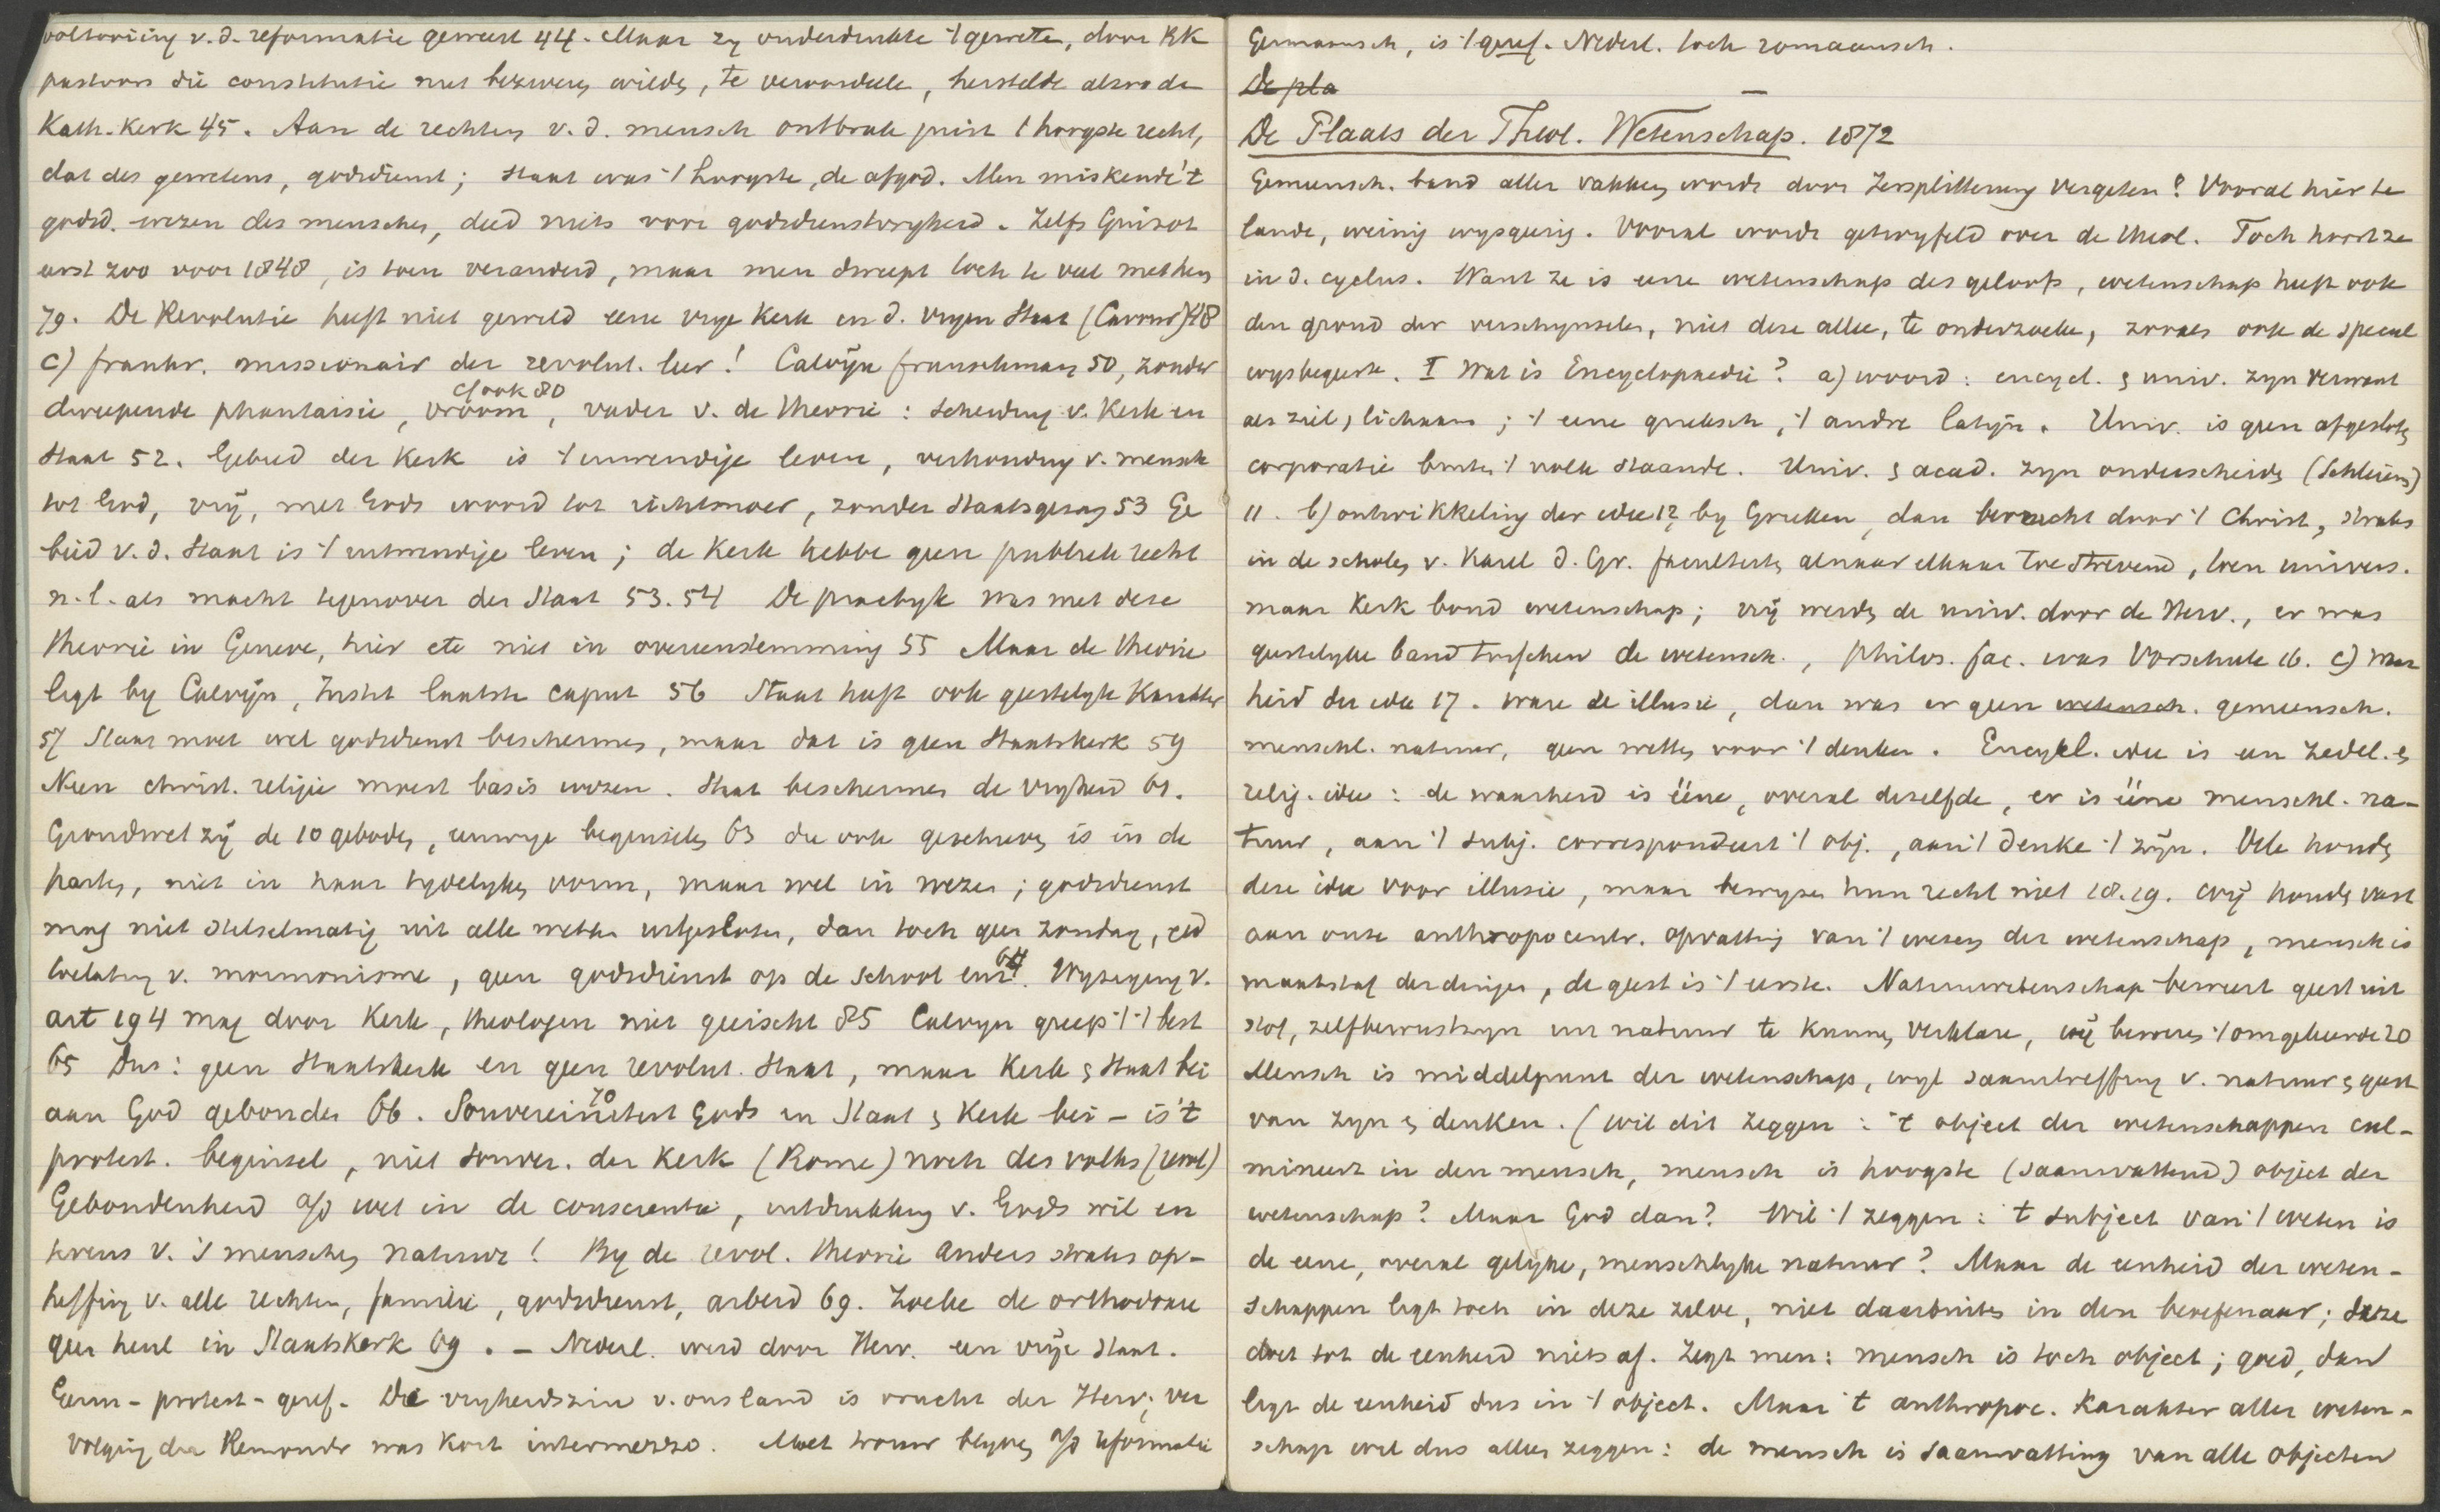 voltooiing v. d. reformatie geweest 44. Maar zy onderdrukte 't gewete, door RK
pastoors die constitutie niet bezweren wilde, te veroordeele, herstelde alzoo de
Kath. Kerk 45. Aan de rechten v. d. mensch ontbrak juist 't hoogste recht,
dat des gewetens, godsdienst; staat was 't hoogste, de afgod. Men miskende 't
godsd. wezen des menschen, deed niets voor godsdienstvryheid. Zelfs Guizot
eerst zoo voor 1848, is toen veranderd, maar men dweept toch te veel met hen
79. De Revolutie heeft niet gewild eene vrye Kerk in d. vryen Staat (Cavour) 48
c) frankr. missionair der revolut. leer! Calvyn franschman 50, zonder
dweepende phantaisie, vroom, vader v. de theorie: scheiding v. Kerk en
cf ook 80
Staat 52. Gebied der Kerk is 't inwendige leven, verhouding v. mensch
tot God, vrij, met Gods woord tot richtsnoer, zonder staatsgezag 53 Ge
bied v. d. Staat is 't uitwendige leven; de Kerk hebbe geen publiek recht
n.l. als macht tegenover den Staat 53. 54 De practyk was met deze
theorie in Geneve, hier etc niet in overeenstemming 55 Maar de theorie
ligt by Calvyn, Instit laatste caput 56 Staat heeft ook geestelyk Karakter
57 Staat moet wel godsdienst beschermen, maar dat is geen Staatskerk 59
Neen christ. religie moest basis wezen. Staat bescherme de vryheid 61.
Grondwet zy de 10 geboden, eeuwige beginselen 63 die ook geschreven is in de
harten, niet in haar tydelyken vorm, maar wel in wezen; godsdienst
mag niet stelselmatig uit alle wetten uitgesloten, dan toch geen zondag, eed
toelating v. mormonisme, geen godsdienst op de school enz. 64 Wyziging v.
art 194 mag door Kerk, theologen niet geëischt 85 Calvyn greep 't 't best
65 Dus: geen Staatskerk en geen revolut. Staat, maar Kerk & Staat bei
aan God gebonden 66. Souvereiniteit Gods in Staat & Kerk bei – is 't
70
protest. beginsel, niet souver. der Kerk (Rome) noch des volks (revol)
Gebondenheid a/d wet in de conscientie, uitdrukking v. Gods wil en
tevens v. 's menschen natuur! By de revol. theorie anders straks op-
heffing v. alle rechten, familie, godsdienst, arbeid 69. Zoeke de orthodoxie
geen heul in Staatskerk 69. – Nederl. werd door Herv. een vrije Staat.
Germ - protest - geref. De vryheidszin v. ons land is vrucht der Herv; ver
volging der Remonstr was Kort intermezzo. Moet trouw blyven a/d reformatie
Germaansch, is 't geref. Nederl. toch romaansch.
De pla
De Plaats der Theol. Wetenschap. 1872
Gemeensch. band aller vakken wordt door Zersplitterung vergeten? Vooral hier te
lande, weinig wysgeerig. Vooral wordt getwyfeld over de theol. Toch hoort ze
in d. cyclus. Want ze is eene wetenschap des geloofs, wetenschap heeft ook
den grond der verschynselen, niet deze alleen, te onderzoeken, zooals ook de specul
wysbegeerte. I Wat is Encyclopaedie? a) woord: encycl. & univ. zyn verwant
als ziel, lichaam; 't eene grieksch, 't andre latyn. Univ. is geen afgesloten
corporatie buiten 't volk staande. Univ. & acad. zyn onderscheiden (Schleierm)
11. b) ontwikkeling der idee 12 by Grieken, dan bevrucht door 't Christ, straks
in de scholen v. Karel d. Gr. faculteiten alnaar elkaar toestrevend, toen univers.
maar Kerk bond wetenschap; vrij werden de univ. door de Herv., er was
geestelyke band tusschen de wetensch., philos. fac. was Vorschule 16. c) Waar
heid der idee 17. Ware ze illusie, dan was er geen wetensch. gemeensch.
menschl. natuur, geen wetten voor 't denken. Encykl. idee is een zedel. &
relig. idee: de waarheid is ééne, overal dezelfde, er is ééne menschl. na-
tuur, aan 't subj. correspondeert 't obj., aan 't denke 't zyn. Vele houden
deze idee voor illusie, maar bewyzen hun recht niet 18. 19. Wij houden vast
aan onze anthropocentr. opvatting van 't wezen der wetenschap, mensch is
maatstaf der dingen, de geest is 't eerste. Natuurwetenschap beweert geest uit
stof, zelfbewustzyn uit natuur te kunnen verklare, wij beweren 't omgekeerde 20
Mensch is middelpunt der wetenschap, wyl saamtreffing v. natuur & geest
van zyn & denken. (Wil dit zeggen: 't object der wetenschappen cul-
mineert in den mensch, mensch is hoogste (saamvattend) object der
wetenschap? Maar God dan? Wil 't zeggen: 't subject van 't weten is
de eene, overal gelyke, menschlyke natuur? Maar de eenheid der weten-
schappen ligt toch in deze zelve, niet daarbuiten in den beoefenaar; deze
doet tot de eenheid niets af. Zegt men: mensch is toch object; goed, dan
ligt de eenheid dus in 't object. Maar 't anthropoc. Karakter aller weten-
schap wil dus alleen zeggen: de mensch is saamvatting van alle objecten